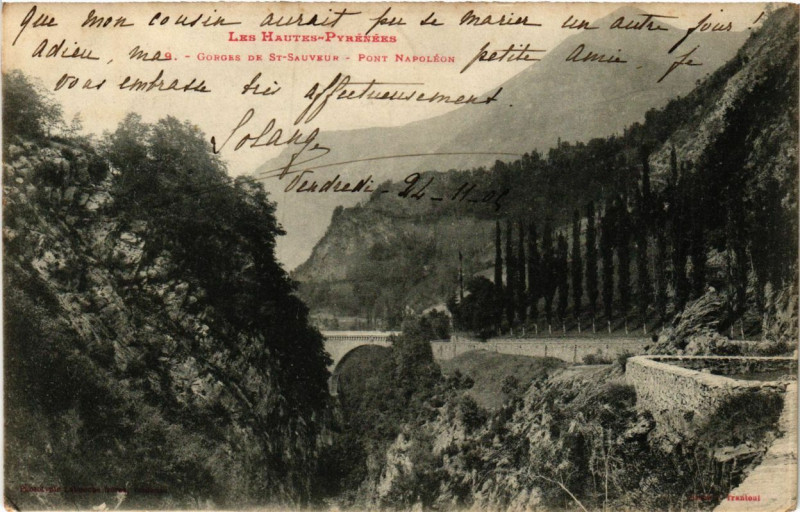 que mon cousin aurait pu se marier un autre jour!
LES HAUTES-PYRÉNÉES
Adieu, ma petite amie, je
9. - GORGES DE ST-SAUVEUR - PONT NAPOLÉON
vous embrasse très affectueusement.
Solange
Vendredi - 24-11-05